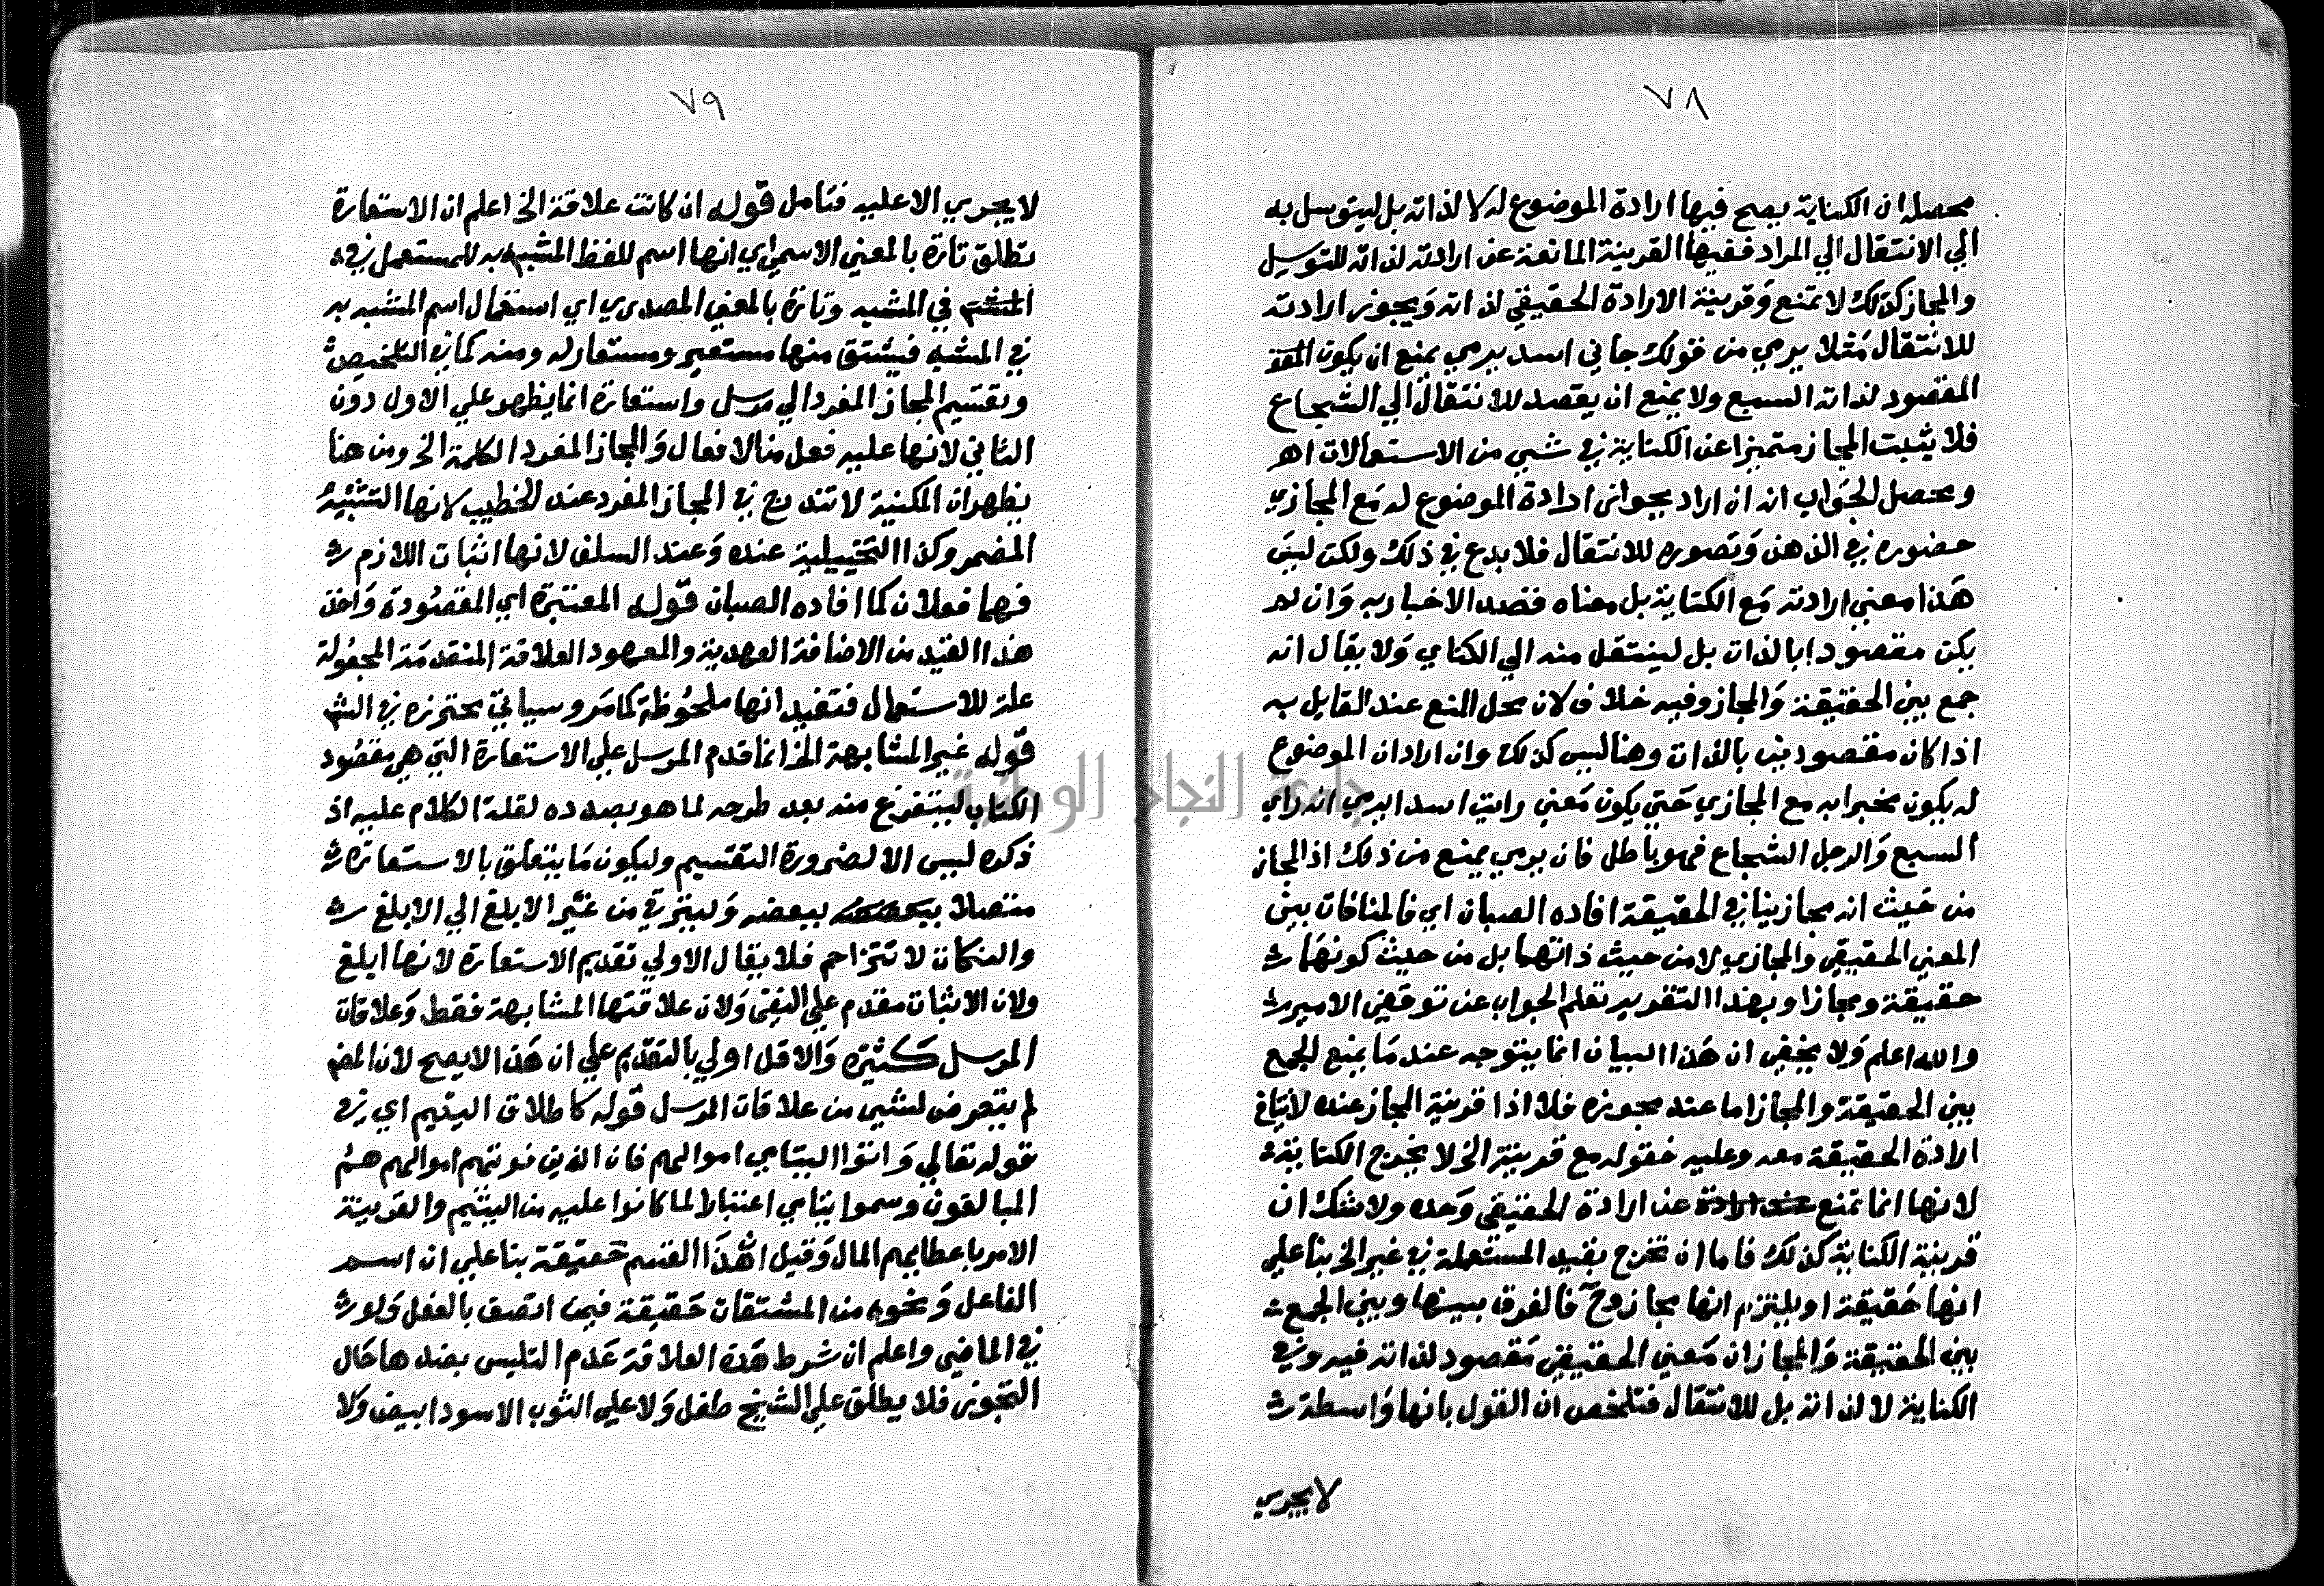 ٧٨
محصله ان الكناية يصح فيها ارادة الموضوع له لا لذاته بل ليتوسل به
الي الانتقال الي المراد ففيها القرينة المانعة عن ارادته لذاته للتوسل
والمجاز كذلك لا تمنع وقرينة الارادة الحقيقي لذاته ويجوز ارادته
للانتقال مثلا يرمي من قولك جاني اسد يرمي يمنع ان يكون
المقصود لذاته السبع ولا يمنع ان يقصد للانتقال الي الشجاع
فلا يثبت المجاز متميزا عن الكناية في شيي من الاستعمالات اهـ
ومحصل الجواب انه ان اراد بجواز ارادة الموضوع له مع المجازي
حضوره في الذهن وتصوره للانتقال فلا بدع في ذلك ولكن ليس
هذا معني ارادته مع الكناية بل معناه قصد الاخبار به وان لم
يكن مقصودا بالذات بل لينتقل منه الي الكناي ولا يقال انه
جمع بين الحقيقة والمجاز وفيه خلاف لان محل المنع عند القايل به
اذا كان مقصودين بالذات وهنا ليس كذلك وان اراد ان الموضوع
له يكون مخبرا به مع المجازي حتي يكون معني رايت اسدا يرمي انه راي
السبع والرجل الشجاع فهو باطل فان يرمي يمنع من ذلك اذ المجاز
من حيث انه مجاز ينافي الحقيقة افاده الصبان اي فالمنافات بين
المعني الحقيقي والمجازي لا من حيث ذاتهما بل من حيث كونهما
حقيقة ومجازا وبهذا التقرير تعلم الجواب عن توقفي الامير
والله اعلم ولا يخفي ان هذا البيان انما يتوجه عند ما يمنع الجمع
بين الحقيقة والمجاز اما عند مجوزه فلا اذا قرينة المجاز عنده لا تنافي
ارادة الحقيقة معه وعليه فقوله مع قرينة الخ لا يخرج الكناية
لانها انما تمنع عن ارادة الحقيقي وحده ولا شك ان
قرينة الكناية كذلك فاما ان تخرج بقيد المستعملة في غير الخ بنا علي
انها حقيقة او يلتزم انها مجاز وح فالفرق بينها وبين الجمع
بين الحقيقة والمجاز ان معني الحقيقي مقصود لذاته فيه وفي
الكناية لا لذاته بل للانتقال فتلخص ان القول بانها واسطة
لا يجري
٧٩
لا يجري الا عليه فتامل قوله ان كانت علاقة الخ اعلم ان الاستعارة
تطلق تارة بالمعني الاسمي اي انها اسم للفظ المشبه به المستعمل في
في المشبه وتارة بالمعني المصدري اي استعمال اسم المشبه به
في المشبه فيشتق منها مستعير ومستعار له ومنه كما في التلخيص
وتقسيم المجاز المفرد الي مرسل واستعارة انما يظهر علي الاول دون
الثاني لانها عليه فعل من الافعال والمجاز المفرد الكلمة الخ ومن هنا
يظهر ان المكنية لا تندرج في المجاز المفرد عند الخطيب لانها التشبيه
المضمر وكذا التخييلية عنده وعند السلف لانها اثبات اللازم
فهما فعلان كما افاده الصبان قوله المعتبرة اي المقصودة واخذ
هذا القيد من الاضافة العهدية والمعهود العلاقة المتقدمة المجعولة
علة للاستعمال فتفيد انها ملحوظة كما مر وسياتي محترزه في الش
قوله غير المشابهة الخ انما قدم المرسل علي الاستعارة التي هي مقصود
الكتاب ليتفرغ منه بعد طرحه لما هو بصدده لقلة الكلام عليه اذ
ذكره ليس الا لضرورة التقسيم وليكون ما يتعلق بالاستعارة
متصلا بعضه ببعضه وليترقي من غير الابلغ الي الابلغ
والنكات لا تتزاحم فلا يقال الاولي تقديم الاستعارة لانها ابلغ
ولان الاثبات مقدم علي النفي ولان علاقتها المشابهة فقط وعلاقات
المرسل كثيرة والاقل اولي بالتقديم علي ان هذا لا يصح لان المص
لم يتعرض لشيي من علاقات المرسل قوله كاطلاق اليتيم اي في
قوله تعالي واتوا اليتامي اموالهم فان الذين نوتهم اموالهم هم
البالغون وسموا يتامي اعتبارا لما كانوا عليه من اليتيم والقرينة
الامر باعطايهم المال وقيل ان هذا القسم حقيقة بنا علي ان اسم
الفاعل ونحوه من المشتقات حقيقة فيمن اتصف بالفعل ولو
في الماضي واعلم ان شرط هذه العلاقة عدم التلبس بضدها حال
التجوز فلا يطلق علي الشيخ طفل ولا علي الثوب الاسود ابيض ولا
جامعة النجاح الوطنية